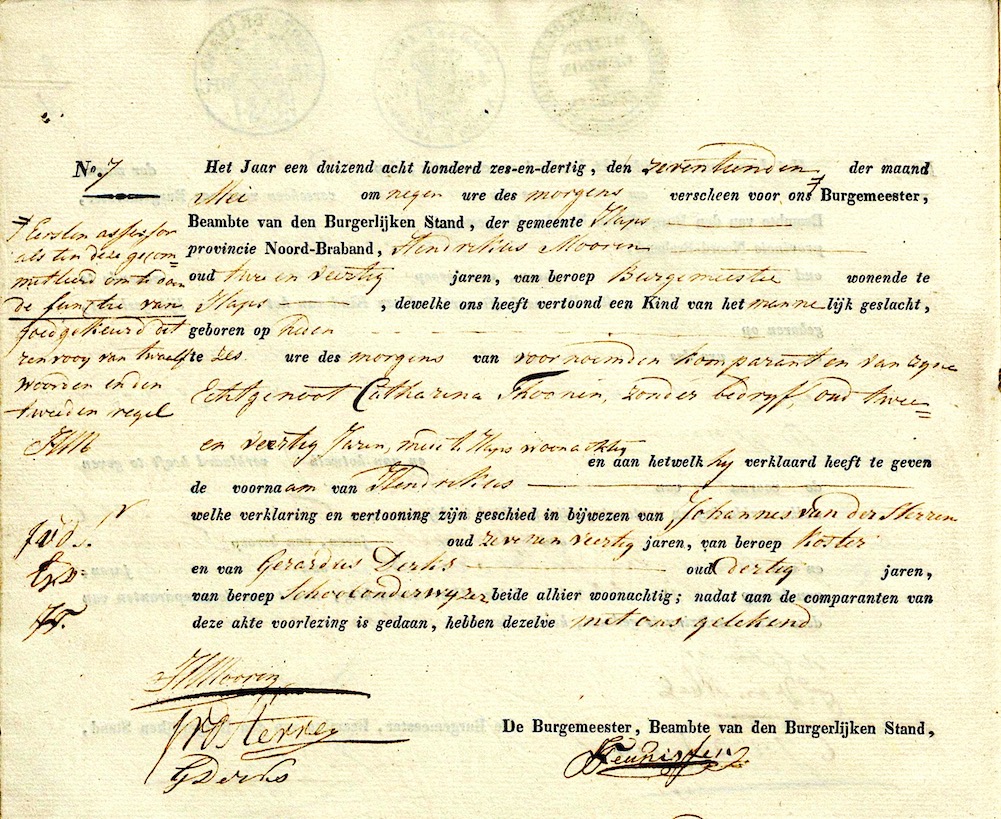 No. 7 Het Jaar een duizend acht honderd zes-en-dertig, den zeventienden der maand
Mei om negen ure des morgens verscheen voor ons Burgemeester,
Beambte van den Burgerlijken Stand, der gemeente Haps
provincie Noord-Braband, Hendrikus Mooren
oud twee en veertig jaren, van beroep Burgemeester wonende te
Haps, dewelke ons heeft vertoond een Kind van het mannelijk geslacht,
geboren op heden
te zes ure des morgens van voornoemden komparant en van zyne
Echtgenoot Catharina Thoonen, zonder bedryf, oud twee=
en veertig Jaren, mede te Haps woonachtig
en aan hetwelk hy verklaard heeft te geven
de voornaam van Hendrikus
welke verklaring en vertooning zijn geschied in bijwezen van Johannes van der Sterren
oud zeven en veertig jaren, van beroep koster
en van Gerardus Derks oud dertig jaren,
van beroep Schoolonderwyzer beide alhier woonachtig; nadat aan de comparanten van
deze akte voorlezing is gedaan, hebben dezelve met ons getekend
Eersten assessor
als ten deze gecom
mitteerd om te doen
de functie van
goedgekeurd det
ren rooy van twaelf
woorden en den
tweeden regel
HM
JVDS.
GD.
JT.
HMooren
JVDSterren
GDerks
De Burgemeester, Beambte van den Burgerlijken Stand,
JTeunissen